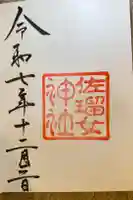 佐瑠女
神社
令和七年十二月二日